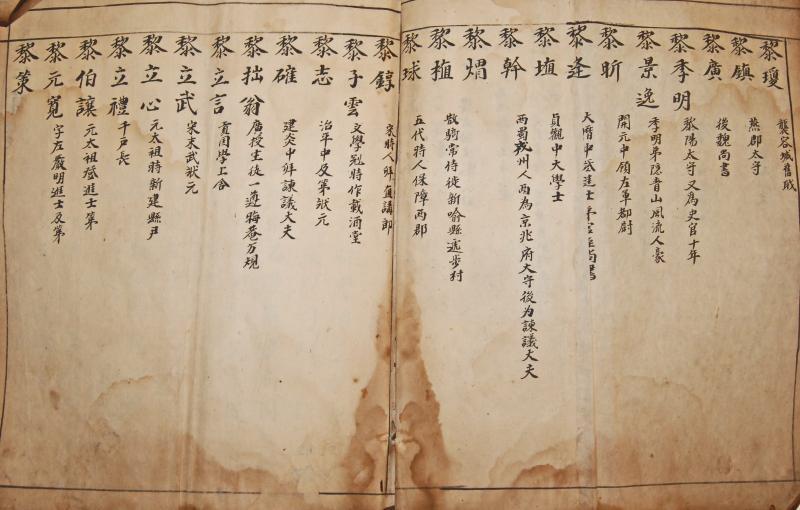 黎瓊
龔容城舊职
黎鎮
燕郡太守
黎廣
後魏尚書
黎季明
黎陽太守又爲史官十年
黎景逸
季明弟隱青山風流人豪
黎昕
開元中領左軍都尉
黎逢
天曆中登進士
尚書
黎埴
貞觀中大學士
黎幹
西蜀戎州人両為京兆府大守後为諫議大夫
黎焆
黎植
散騎常侍徙新喻縣逕步村
黎球
五代時人保障両郡
黎錞
宋時人鲜直講郎
黎子雲
文學冠時作載酒堂
黎志
治平中及第狀元
黎確
建炎中鲜諫議大夫
黎拙翁
廣授生徒一遵晦菴万規
黎立言
貢國學上舍
黎立武
宋末武狀元
黎立心
元太祖時新建縣尹
黎立禮
千戸長
黎伯讓
元太祖登進士第
黎元寬
字左嚴明進士及第
黎策